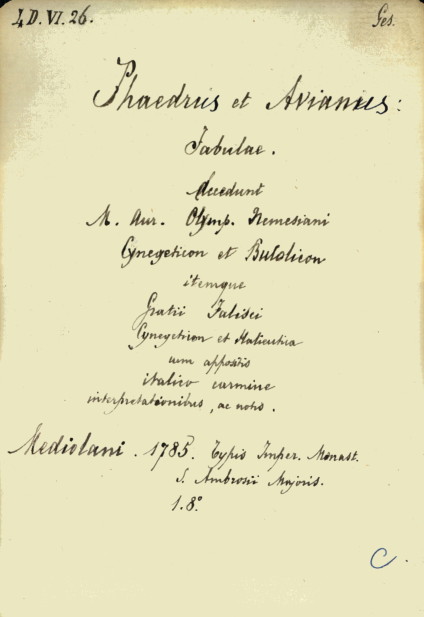 4 D. VI. 26.
Ges.
Phaedrus et Avianus:
Fabulae.
Accedunt
M. Aur. Olymp. Nemesiani
Cynegeticon et Bukolicon
itemque
Gratii Falisci
Cynegeticon et Halieutica
cum appositis
italico carmine
interpretationibus, ac notis.
Mediolani. 1785. Typis Imper. Monast.
S. Ambrosii Majoris.
1.8º
C.